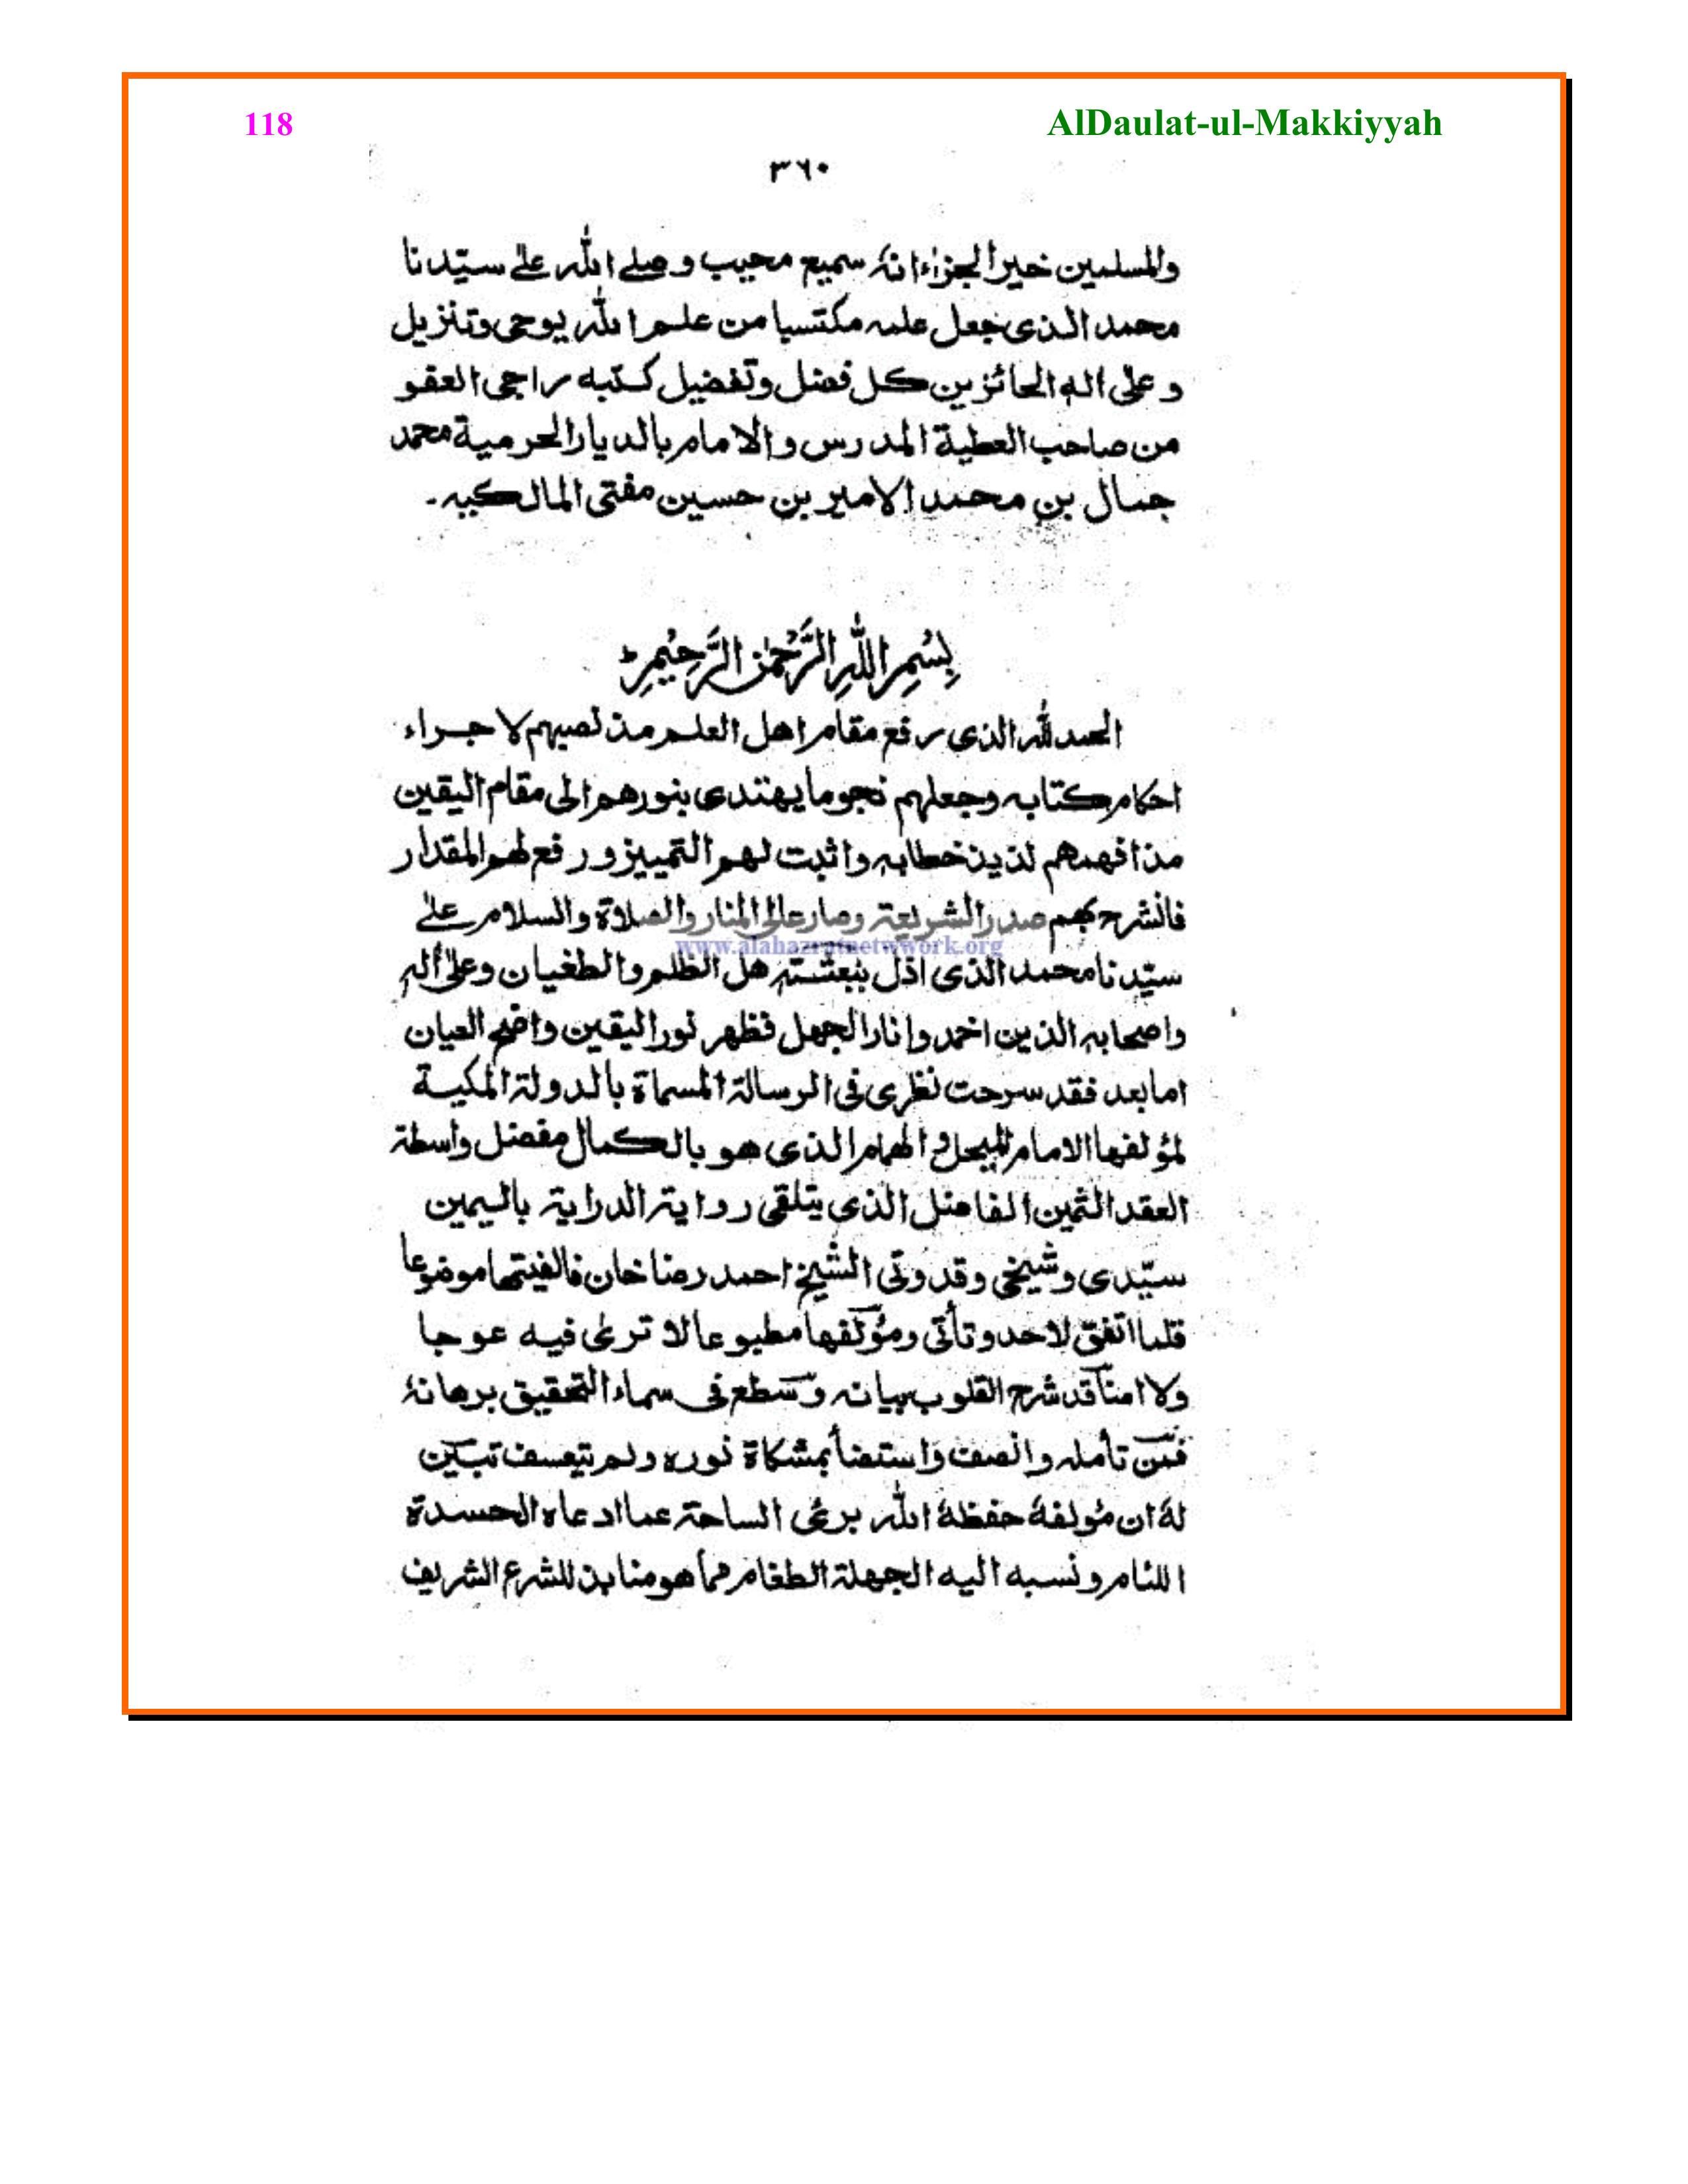 118
AlDaulat-ul-Makkiyyah
٣٦٠
والمسلمين خير الجزاء انهٗ سميع مجيب وصلے اللّٰه علےٰ سيّدنا
محمد الذى جعل علمه مكتسبا من علم اللّٰه يوحى وتنزيل
وعلى اله الحائزين كل فضل وتفضيل كتبه راجى العفو
من صاحب العطية المدرس والامام بالديار الحرمية محمد
جمال بن محمد الامير بن حسين مفتى المالكيه۔
بِسْمِ اللّٰهِ الرَّحْمٰنِ الرَّحِيْمِ ط
الحمد للّٰه الذى رفع مقام اهل العلم مذ نصبهم لاجراء
احكام كتابه وجعلهم نجوما يهتدى بنورهم الى مقام اليقين
مذ افهمهم لذيذ خطابه واثبت لهم التمييز ورفع لهم المقدار
فانشرح بهم صدر الشريعة وصار عالى المنار والصلاة والسلام علےٰ
www.alahazratnetwork.org
سيّدنا محمد الذى اذل ببعثته هل الظلم والطغيان وعلىٰ أله
واصحابه الذين اخمدوا نار الجهل فظهر نور اليقين واضح العيان
اما بعد فقد سرحت نظرى فى الرسالة المسماة بالدولة المكية
لمؤلفها الامام المبجل والهمام الذى هو بالكمال مفضل واسطة
العقد الثمين الفاضل الذى يتلقى رواية الدراية باليمين
سيّدى وشيخى وقدوتى الشيخ احمد رضا خان فالفيتها موضوعا
قلما اتفق لاحد وتأتى ومؤلفها مطبوعا لا ترىٰ فيه عوجا
ولا امتا قد شرح القلوب بيانه وسطع فى سماء التحقيق برهانهٗ
فمن تأمله وانصف واستضأ بمشكاة نوره ولم يتعسف تبيّن
لهٗ ان مؤلفهٗ حفظهٗ اللّٰه برئى الساحة عما ادعاه الحسدة
اللئام ونسبه اليه الجهلة الطغام مما هو منابذ للشرع الشريف